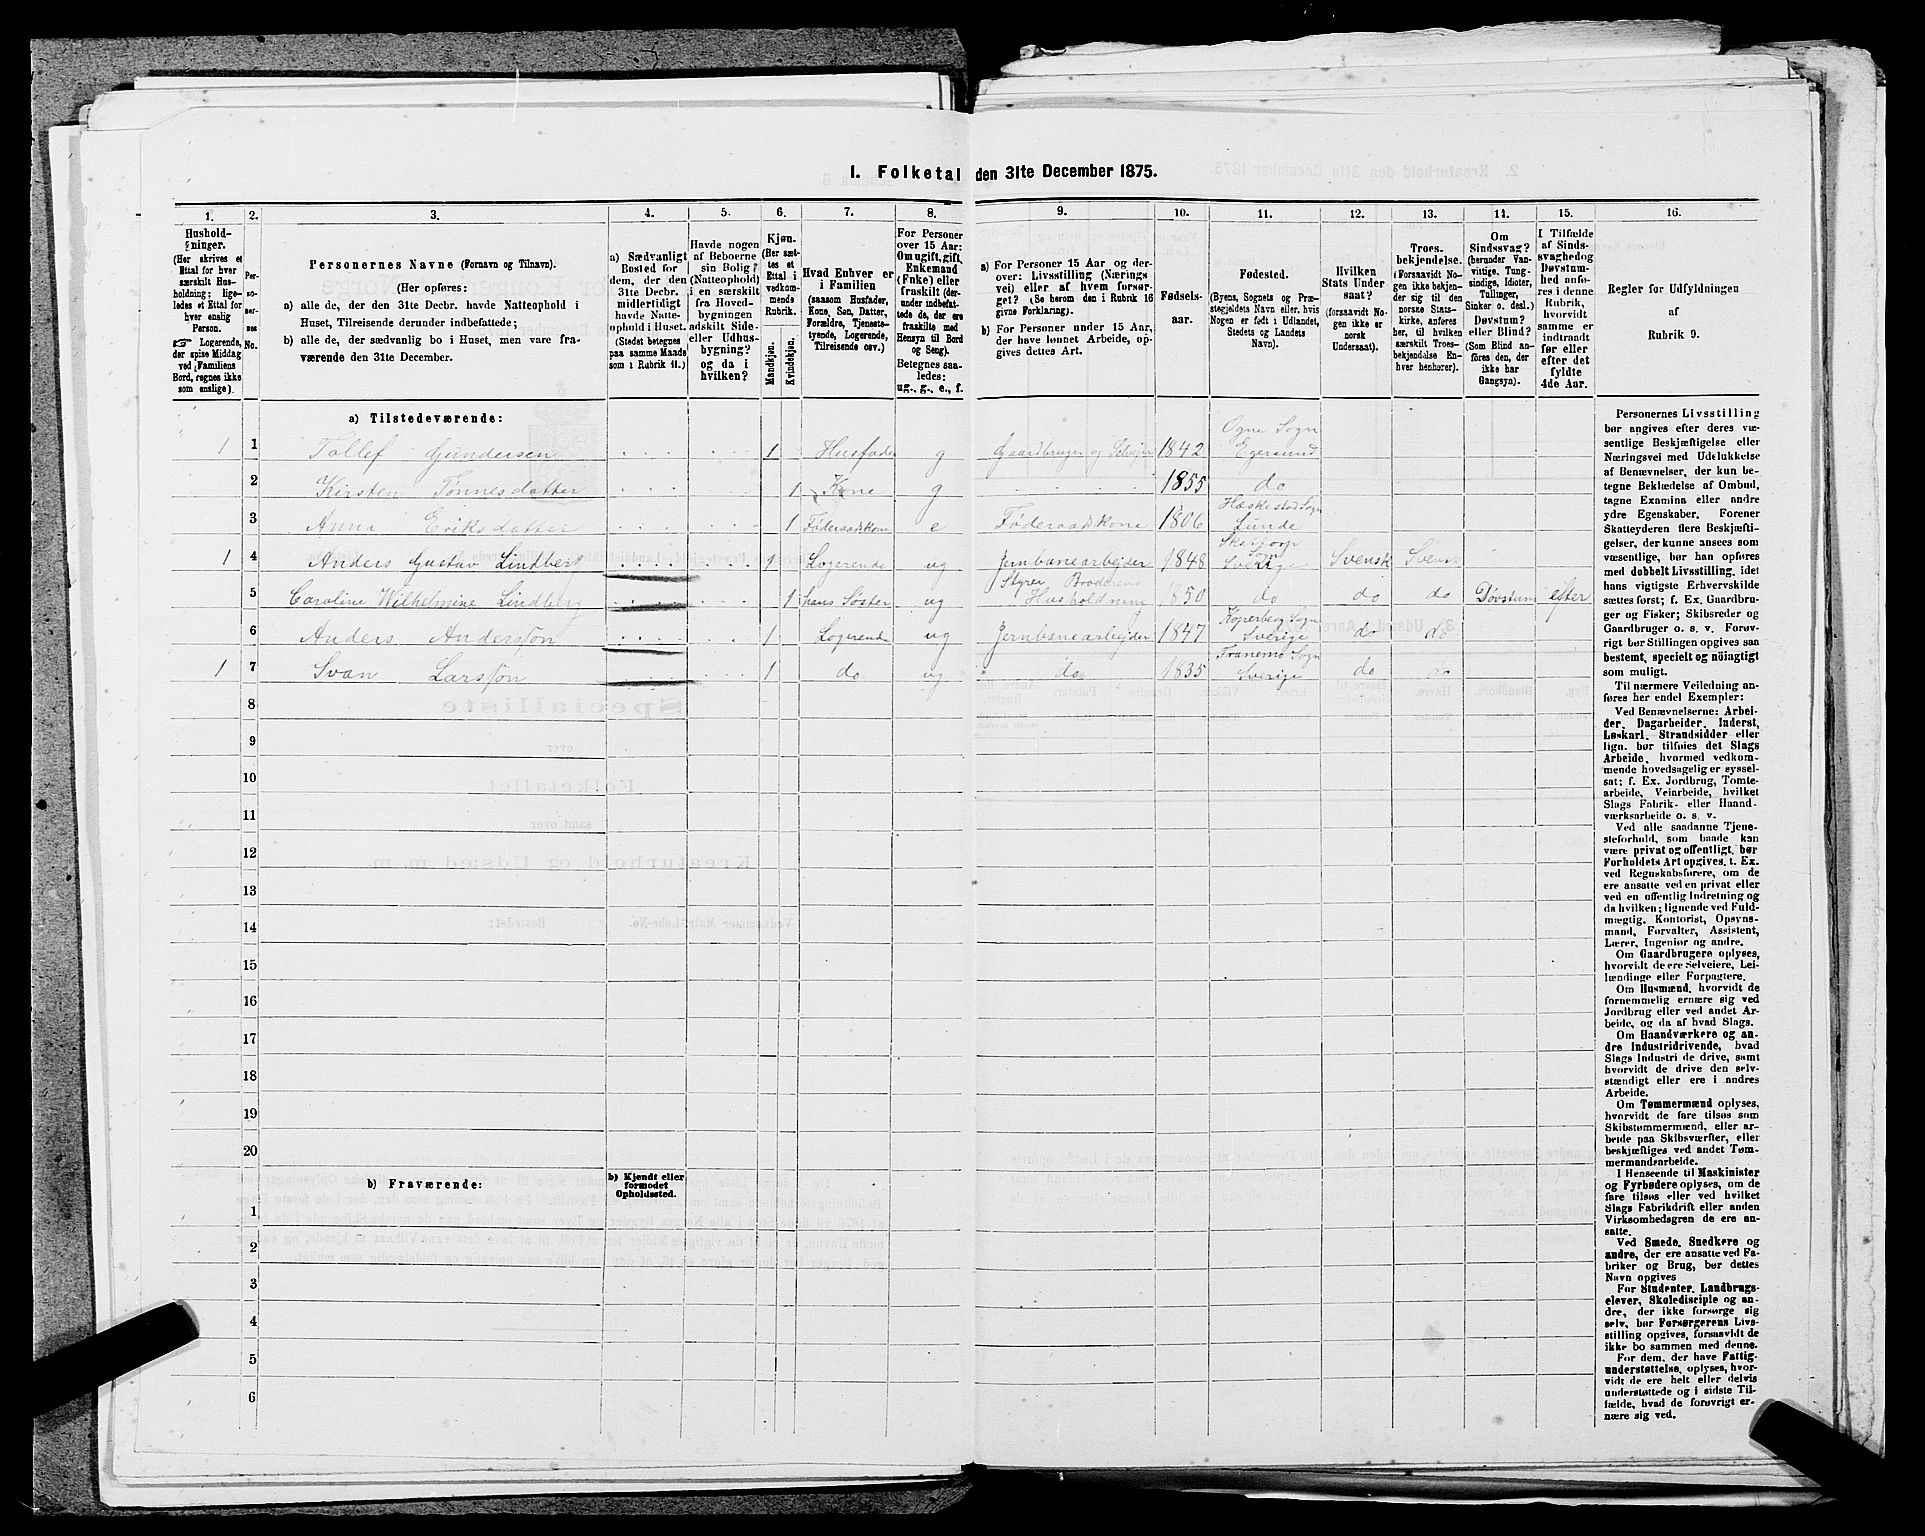 1. Folketal den 31te December 1875.
1.
Hushold-
ninger.
(Her skrives et
Ettal for hver
særskilt Hus-
holdning; lige-
ledes et Ettal for
hver enslig
Person.
☞ Logerende,
der spise Middag
ved Familiens
Bord, regnes ikke
som enslige).
2.
Per-
so-
ner-
nes
No.
3.
Personernes Navne (Fornavn og Tilnavn).
(Her opføres:
a) alle de, der den 31te Decbr. havde Natteophold i
Huset, Tilreisende derunder indbefattede;
b) alle de, der sædvanlig bo i Huset, men vare fra-
værende den 31te December.
4.
a) Sædvanligt
Bosted for
dem, der den
31te Decbr.
midlertidigt
havde Natte-
ophold i Huset.
(Stedet betegnes
paa samme Maade
som i Rubrik 11.)
5.
Havde nogen
af Beboerne
sin Bolig
(Natteophold)
i en særskilt
fra Hoved-
bygningen
adskilt Side-
eller Udhus-
bygning?
og da i
hvilken?
6.
Kjøn.
(Her sæt-
tes et
Ettal i
vedkom-
mende
Rubrik.
Mandkjøn.
Kvindekjøn.
7.
Hvad Enhver er
i Familien
(saasom Husfader,
Kone, Søn, Datter,
Forældre, Tjeneste-
tyende, Logerende,
Tilreisende osv.)
8.
For Personer
over 15 Aar:
Om ugift, gift,
Enkemand
(Enke) eller
fraskilt (der-
under indbefat-
tede de, der ere
fraskilte med
Hensyn til Bord
og Seng).
Betegnes saa-
ledes:
ug., g., e., f.
9.
a) For Personer 15 Aar og der-
over: Livsstilling (Nærings
vei) eller af hvem forsør-
get? (Se herom den i Rubrik 16
givne Forklaring).
b) For Personer under 15 Aar,
der have lønnet Arbeide, op-
gives dettes Art.
10.
Fødsels-
aar.
11.
Fødested.
(Byens, Sognets og Præ-
stegjeldets Navn eller, hvis
Nogen er født i Udlandet,
Stedets og Landets
Navn).
12.
Hvilken
Stats Under
saat?
(forsaavidt No-
gen ikke er
norsk
Undersaat).
13.
Troes-
bekjendelse.
(Forsaavidt No-
gen ikke bekjen-
der sig til den
norske Stats-
kirke, anføres
her, til hvilken
særskilt Troes-
bekjendelse En-
hver henhører).
14.
Om
Sindssvag?
(herunder Van-
vittige, Tung-
sindige, Idioter,
Tullinger,
Sinker o. desl.)
Døvstum?
eller Blind?
(Som Blind an-
føres den, der
ikke har
Gangsyn).
15.
I Tilfælde
af Sinds-
svaghed og
Døvstum-
hed anfø-
res i denne
Rubrik,
hvorvidt
samme er
indtraadt
før eller
efter det
fyldte
4de Aar.
16.
Regler for Udfyldningen
af
Rubrik 9.
a) Tilstedeværende:
1 1 Tollef Gundersen 1 Husfader g Gaardbruger og Selveier 1842 Ogne Sogn Egersund
2 Kirsten Tønnesdatter 1 Kone g 1855 do
3 Anna Eriksdatter 1 Føderaadskone e Føderaadskone 1806 Hæskestad Sogn Lunde
1 4 Anders Gustav Lindberg 1 Logerende ug Jernbanearbejder 1848 Sogn Sverige Svensk Svensk
5 Caroline Wilhelmine Lindberg 1 hans Søster ug Styrer Broderens Husholdning 1850 do do do Døvstum efter
6 Anders Andersson 1 Logerende ug Jernbanearbejder 1847 Koperberg Sogn Sverige do do
1 7 Svan Larsson 1 do ug do 1835 Tranemo Sogn Sverige do do
8
9
10
11
12
13
14
15
16
17
18
19
20
b) Fraværende:
b) Kjendt eller
formodet
Opholdssted.
1
2
3
4
5
6
Personernes Livsstilling
bør angives efter deres væ-
sentlige Beskjæftigelse eller
Næringsvei med Udelukkelse
af Benævnelser, der kun be-
tegne Beklædelse af Ombud,
tagne Examina eller andre
ydre Egenskaber. Forener
Skatteyderen flere Beskjæfti-
gelser, der kunne ansees som
væsentlige, bør han opføres
med dobbelt Livsstilling, idet
hans vigtigste Erhvervskilde
sættes først; f. Ex. Gaardbru-
ger og Fisker; Skibsreder og
Gaardbruger o. s. v. Forøv-
rigt bør Stillingen opgives saa
bestemt, specielt og nøiagtigt
som muligt.
Til nærmere Veiledning an-
føres her endel Exempler:
Ved Benævnelserne: Arbei-
der, Dagarbeider, Inderst,
Løskarl, Strandsidder eller
lign. bør tilføies det Slags
Arbeide, hvormed vedkom-
mende hovedsagelig er syssel-
sat; f. Ex. Jordbrug, Tomte-
arbeide, Veiarbeide, hvilket
Slags Fabrik- eller Haand-
værksarbeide o. s. v.
Ved alle saadanne Tjene-
steforhold, som baade kan
være privat og offentligt, bør
Forholdets Art opgives, t. Ex.
ved Regnskabsførere, om de
ere ansatte ved en privat eller
ved en offentlig Indretning og
da hvilken; lignende ved Fuld-
mægtig, Kontorist, Opsyns-
mand, Forvalter, Assistent,
Lærer, Ingeniør og andre.
Om Gaardbrugere oplyses,
hvorvidt de ere Selveiere, Lei-
lændinge eller Forpagtere.
Om Husmænd, hvorvidt de
fornemmelig ernære sig ved
Jordbrug eller ved andet Ar-
beide, og da af hvad Slags.
Om Haandværkere og an-
dre Industridrivende, hvad
Slags Industri de drive, samt
hvorvidt de drive den selv-
stændigt eller ere i andres
Arbeide.
Om Tømmermænd oplyses,
hvorvidt de fare tilsøs som
Skibstømmermænd, eller ar-
beide paa Skibsværfter, eller
beskjæftiges ved andet Tøm-
mermandsarbeide.
I Henseende til Maskinister
og Fyrbødere oplyses, om de
fare tilsøs eller ved hvilket
Slags Fabrikdrift eller anden
Virksomhedsgren de ere an-
satte.
Ved Smede, Snedkere og
andre, der ere ansatte ved Fa-
briker og Brug, bør dettes
Navn opgives
For Studenter, Landbrugs-
elever, Skoledisciple og an-
dre, der ikke forsørge sig
selv, bør Forsørgerens Livs-
stilling opgives, forsaavidt de
ikke bo sammen med denne.
For dem, der have Fattig-
understøttelse, oplyses, hvor-
vidt de ere helt eller delvis
understøttede og i sidste Til-
fælde, hvad de forøvrigt er-
nære sig ved.